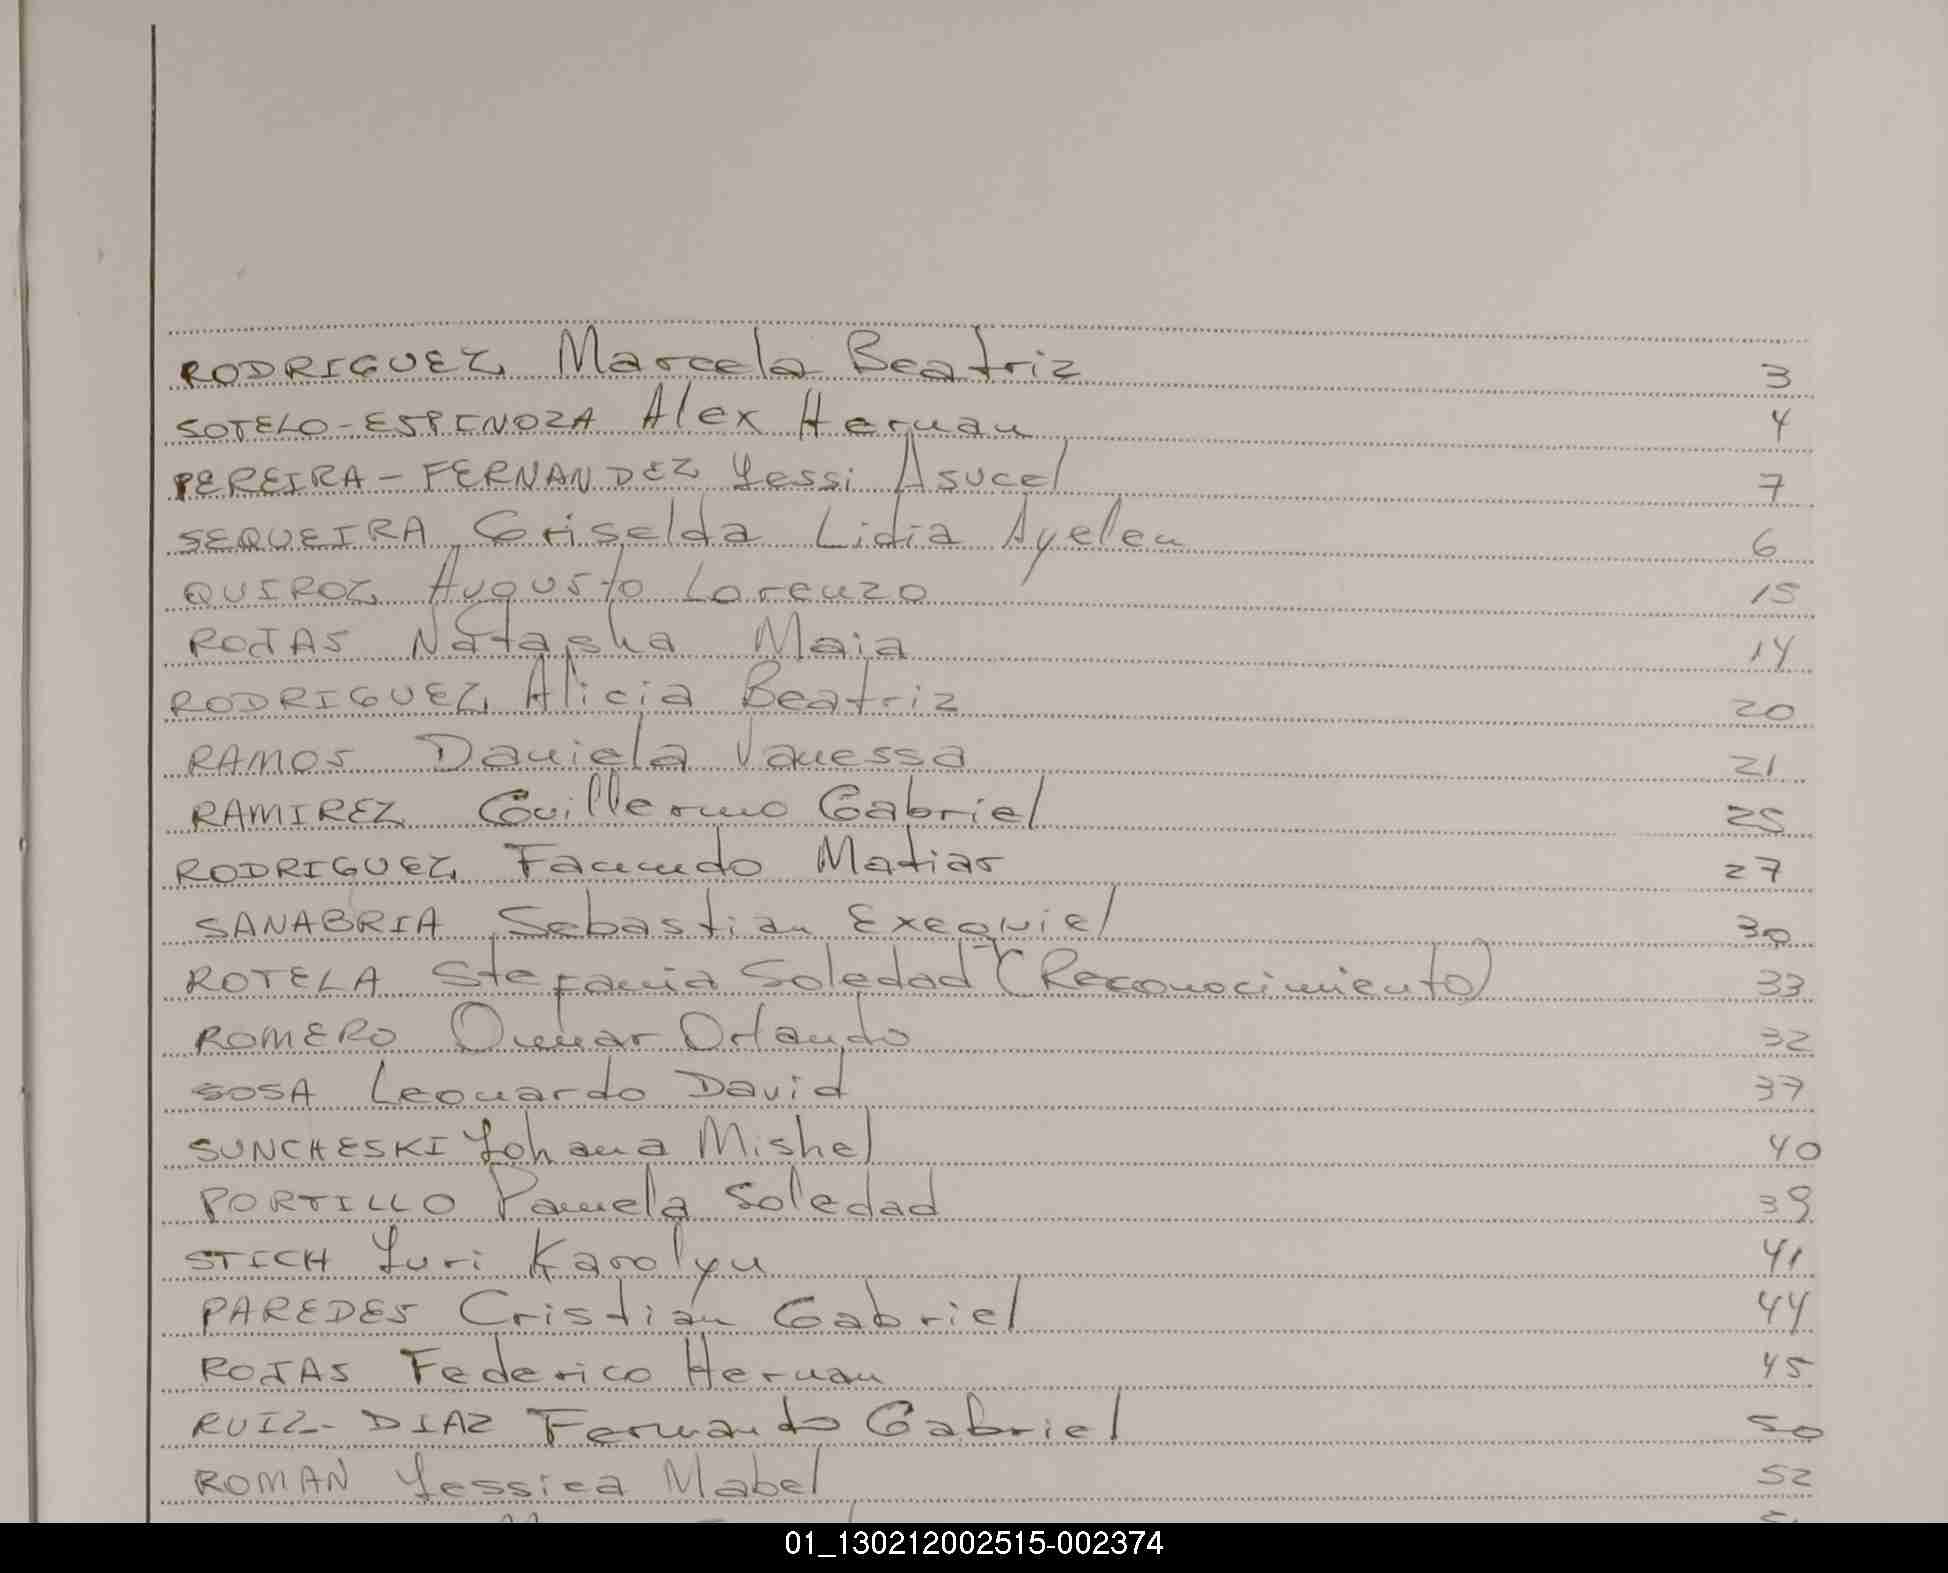 RODRIGUEZ Marcela Beatriz 3
SOTELO-ESPINOZA Alex Hernan 4
PEREIRA-FERNANDEZ Yessi Asucel 7
SEQUEIRA Griselda Lidia Ayelen 6
QUIROZ Augusto Lorenzo 15
ROJAS Natasha Maia 14
RODRIGUEZ Alicia Beatriz 20
RAMOS Daniela Vanessa 21
RAMIREZ Guillermo Gabriel 25
RODRIGUEZ Facundo Matias 27
SANABRIA Sebastian Exequiel 30
ROTELA Stefania Soledad (Reconocimiento) 33
ROMERO Omar Orlando 32
SOSA Leonardo David 37
SUNCHESKI Yohana Mishel 40
PORTILLO Pamela Soledad 39
STICH Yuri Karolyn 41
PAREDES Cristian Gabriel 44
ROJAS Federico Hernan 45
RUIZ-DIAZ Fernando Gabriel 50
ROMAN Yessica Mabel 52
01_130212002515-002374